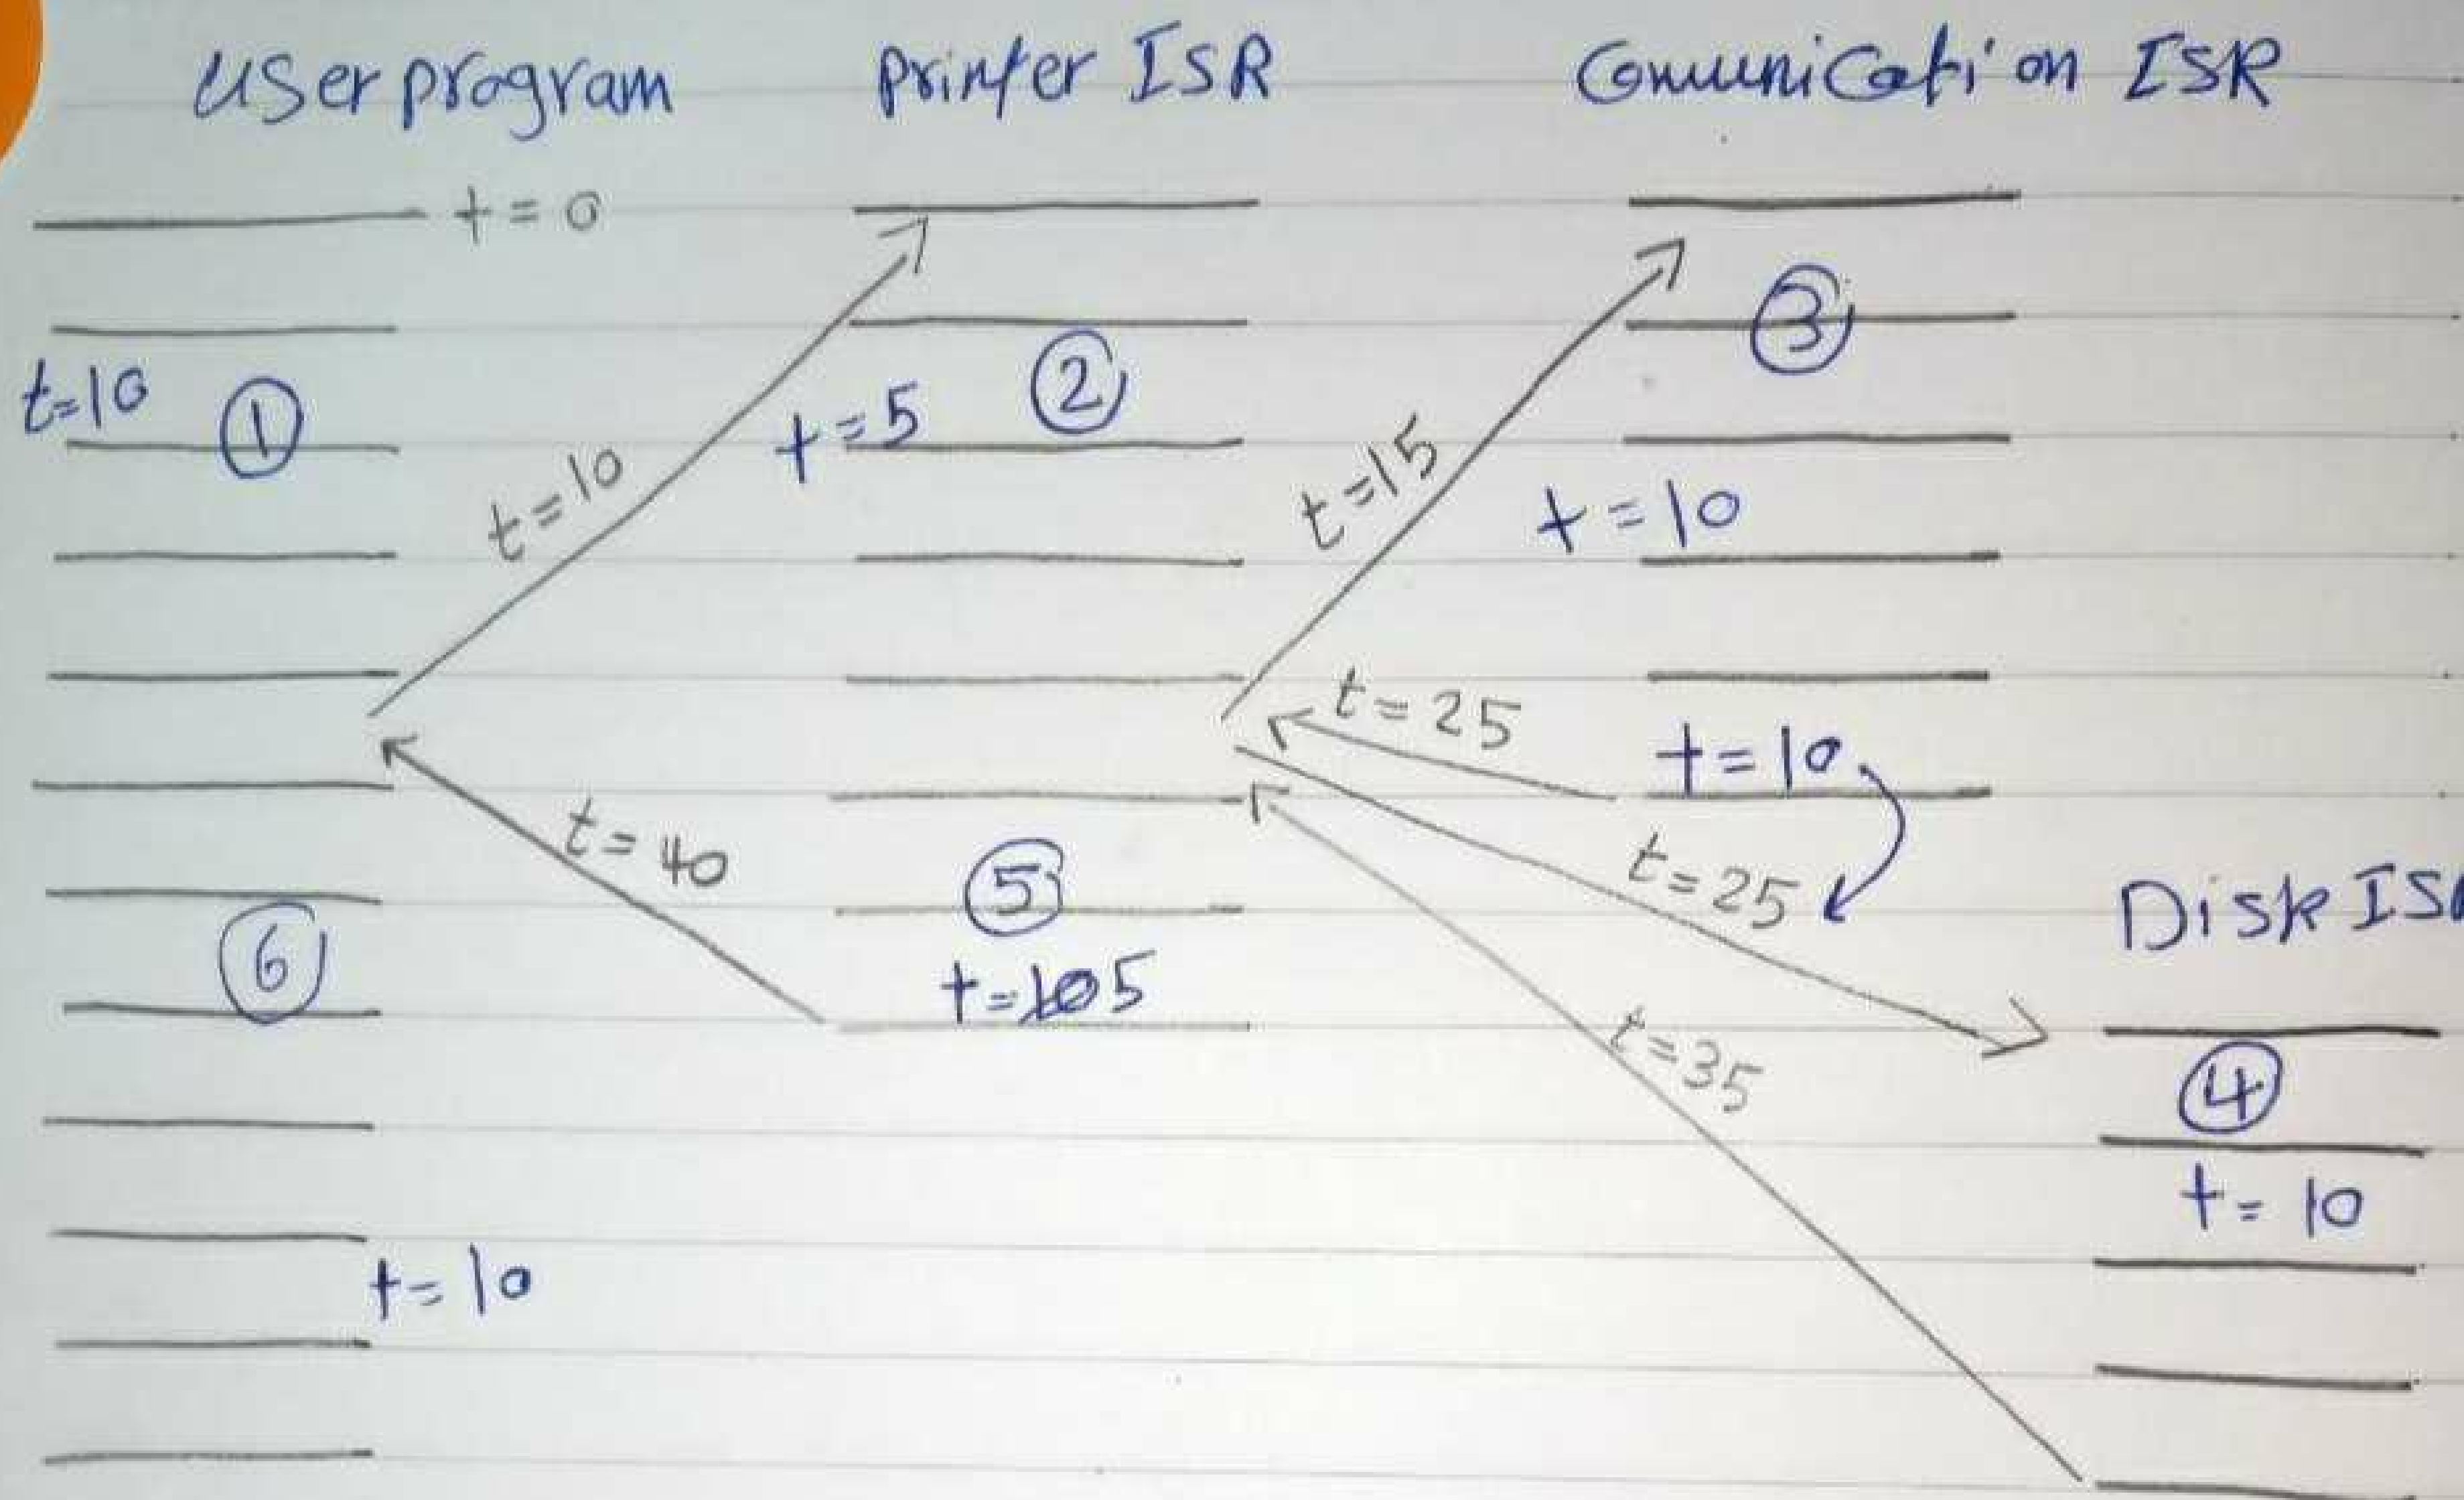 user program printer ISR Comunication ISR
t = 0
3
t=10 1 t=5 2
t=10 t=15 t=10
t=25 t=10
t=40 5 t=25 Disk IS
6 t=5
t=35 4
t=10
t=10